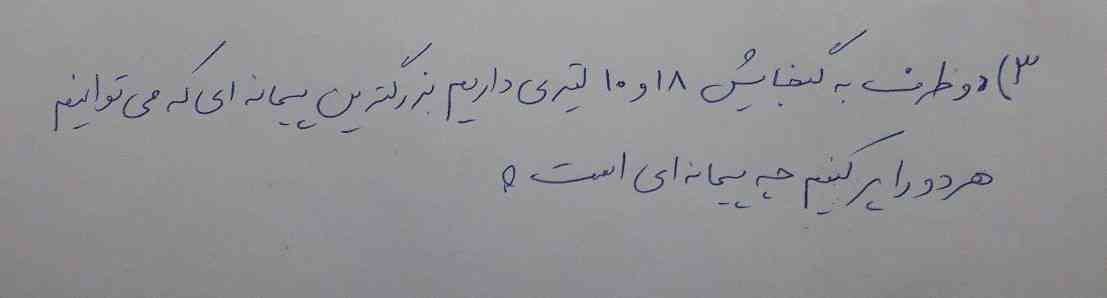 ۳) دو ظرف به گنجایش ۱۸ و ۱۰ لیتری داریم بزرگترین پیمانه ای که می توانیم
هر دو را پر کنیم چه پیمانه ای است ؟